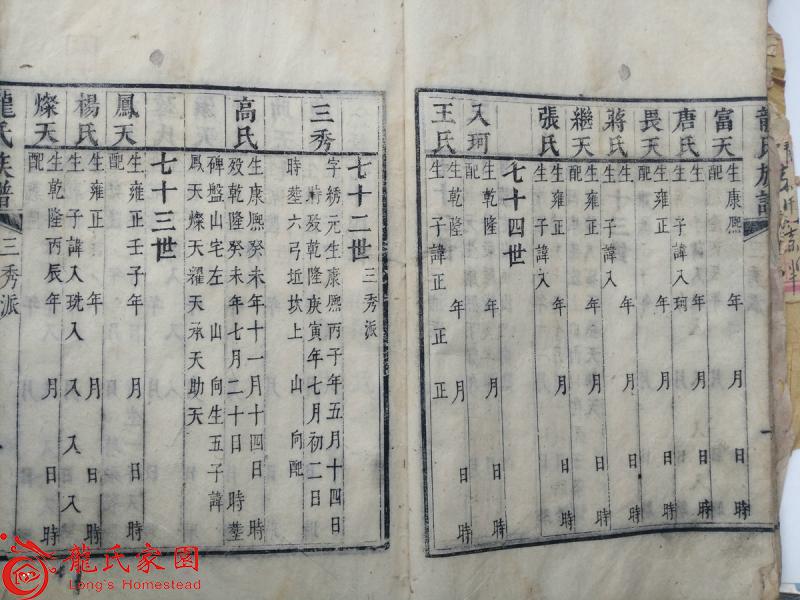 龍氏族譜
富天 生康熙 年 月 日 時
配
唐氏 生 子諱入珂 年 月 日 時
畏天 生雍正 年 月 日 時
配
蔣氏 生 子諱入 年 月 日 時
継天 生雍正 年 月 日 時
配
張氏 生 子諱入 年 月 日 時
七十四世
入珂 生乾隆 年 月 日 時
配
王氏 生乾隆 年 月 日 時
生 子諱正 正 正
七十二世 三秀派
三秀 字綉元生康熙丙子年五月十四日
時殁乾隆庚寅年七月初二日
時塟六弓坵坎上 山 向配
高氏 生康熙癸未年十一月十四日 時
殁乾隆癸未年七月二十日 時塟
碑盤山宅左 山 向生五子諱
鳳天燦天濯天承天助天
七十三世
鳳天 生雍正壬子年 月 日 時
配
楊氏 生雍正 年 月 日 時
生 子諱入珗入 入 入 入
燦天 生乾隆丙辰年 月 日 時
配
龍氏族譜 三秀派
龍氏家園
Long's Homestead